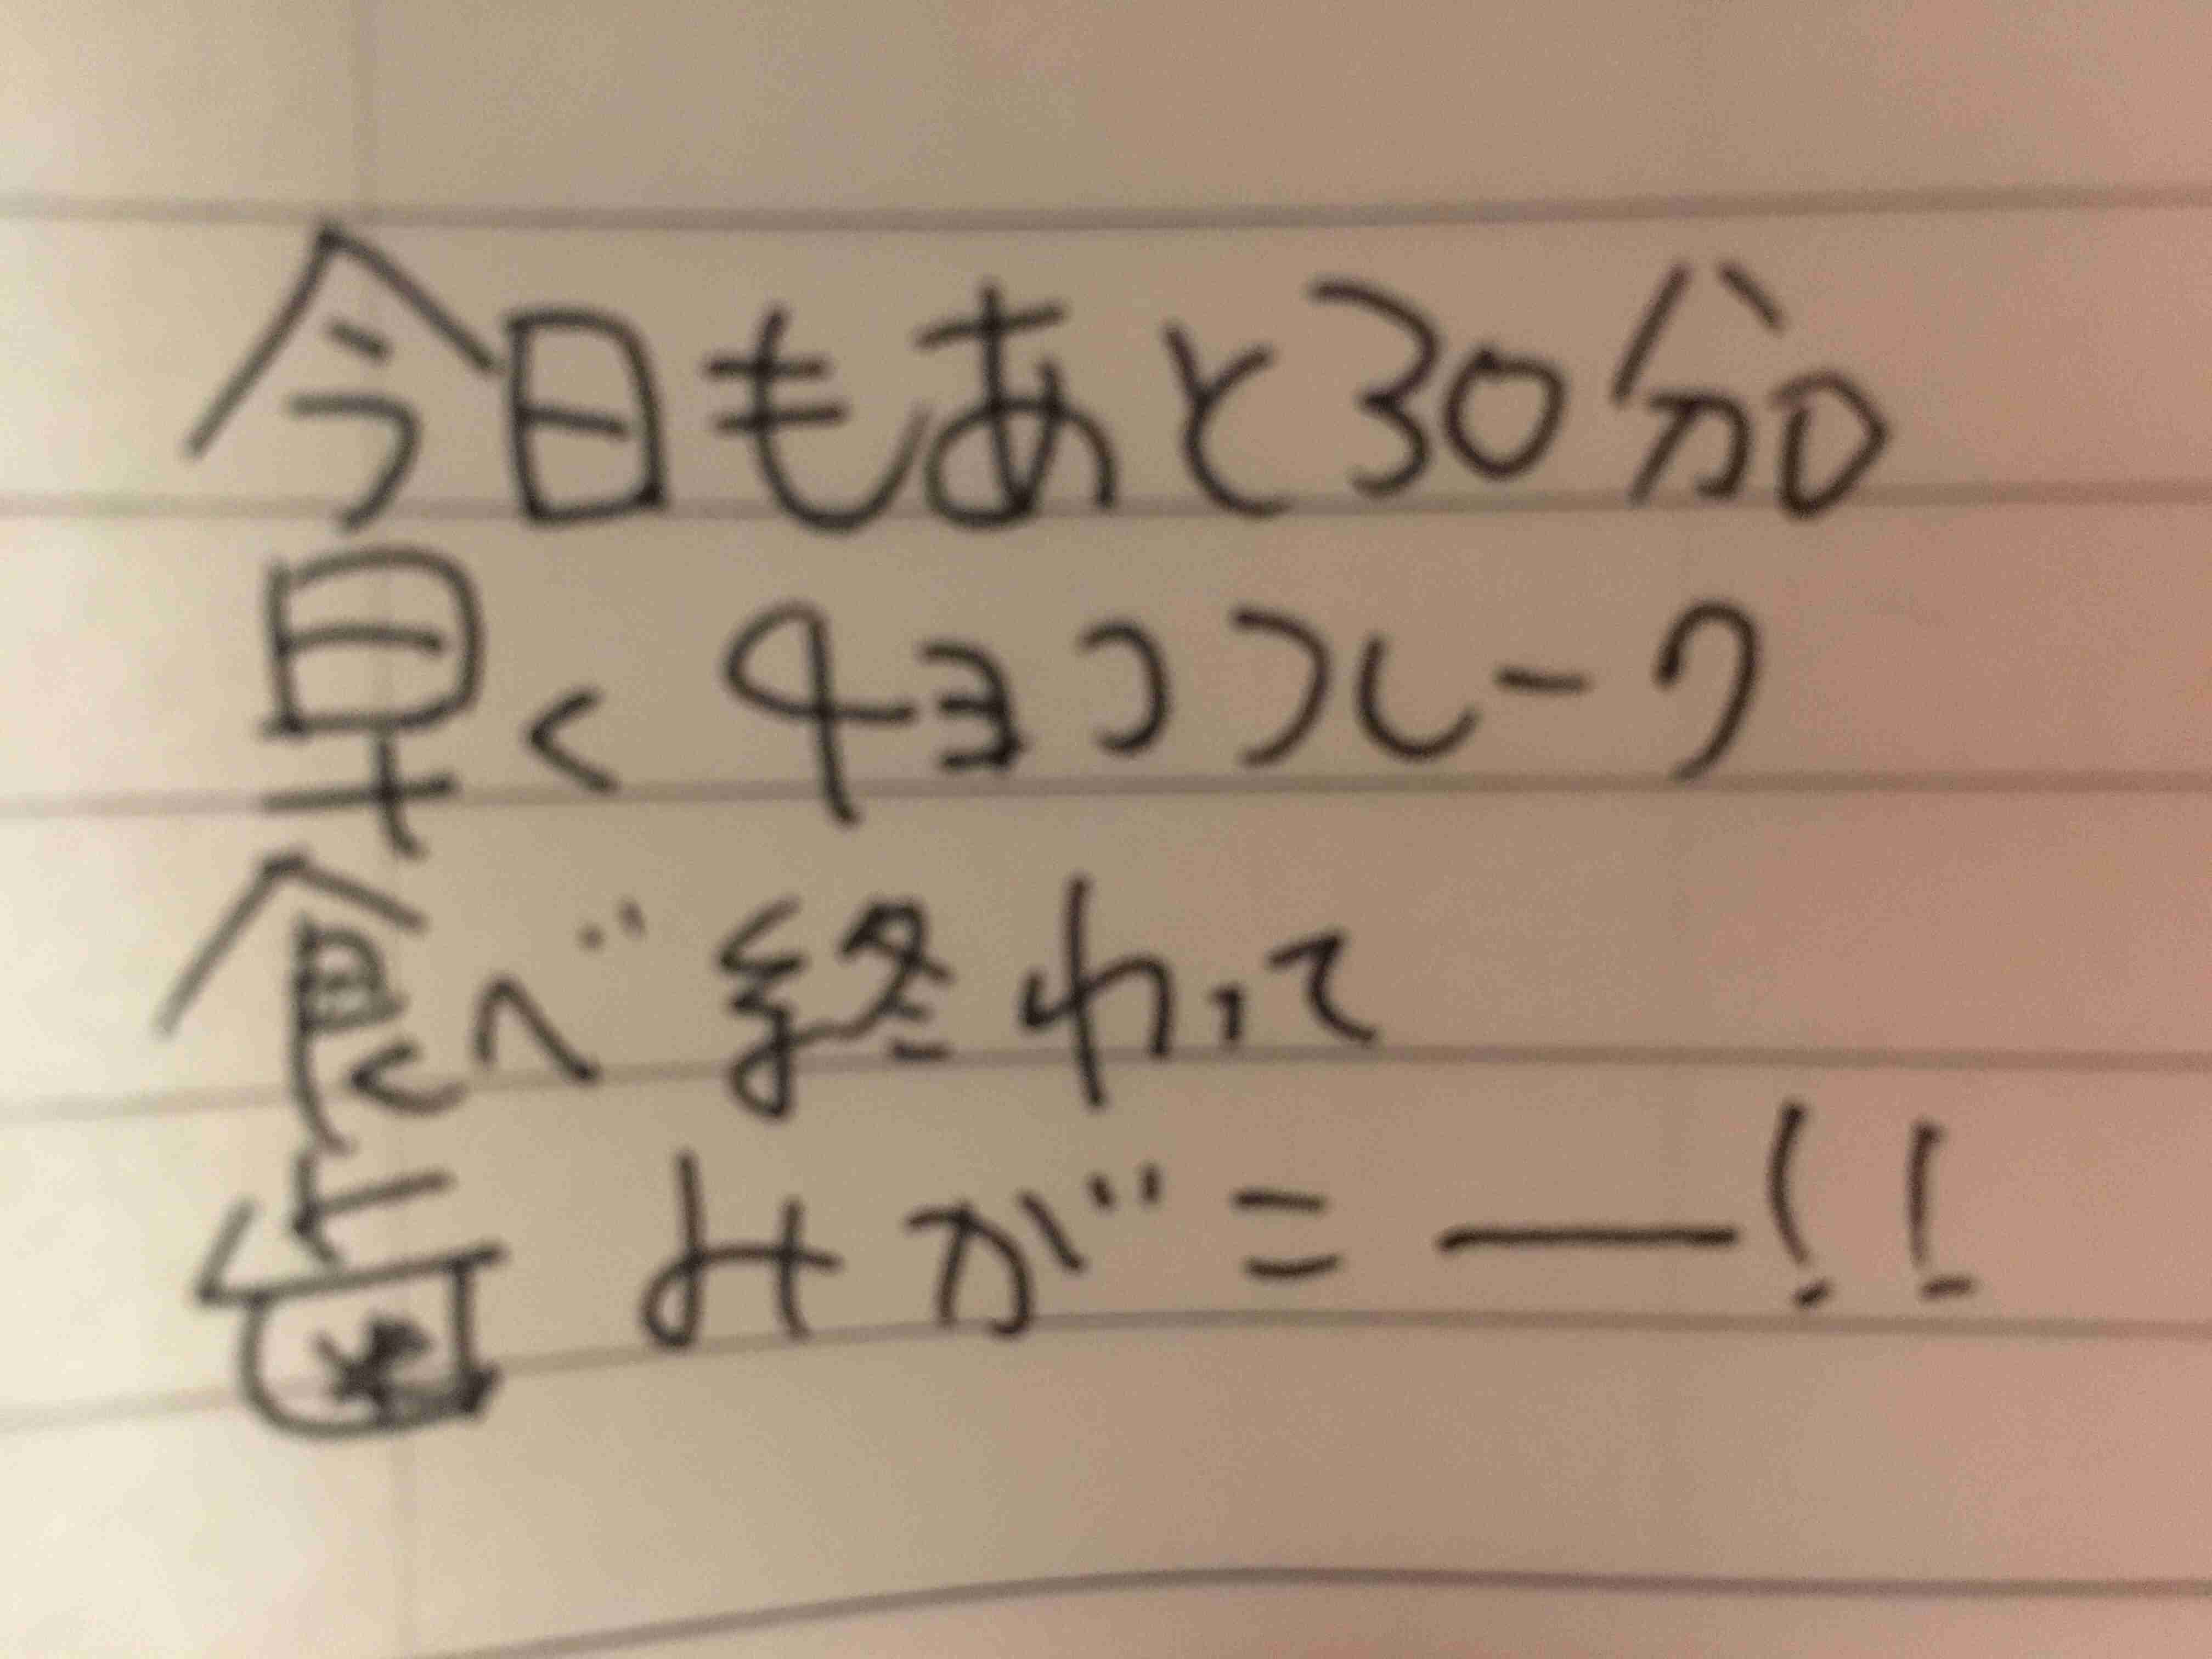 今日もあと30分。
早くチョコフレーク
食べ終わって
歯みがこー!!